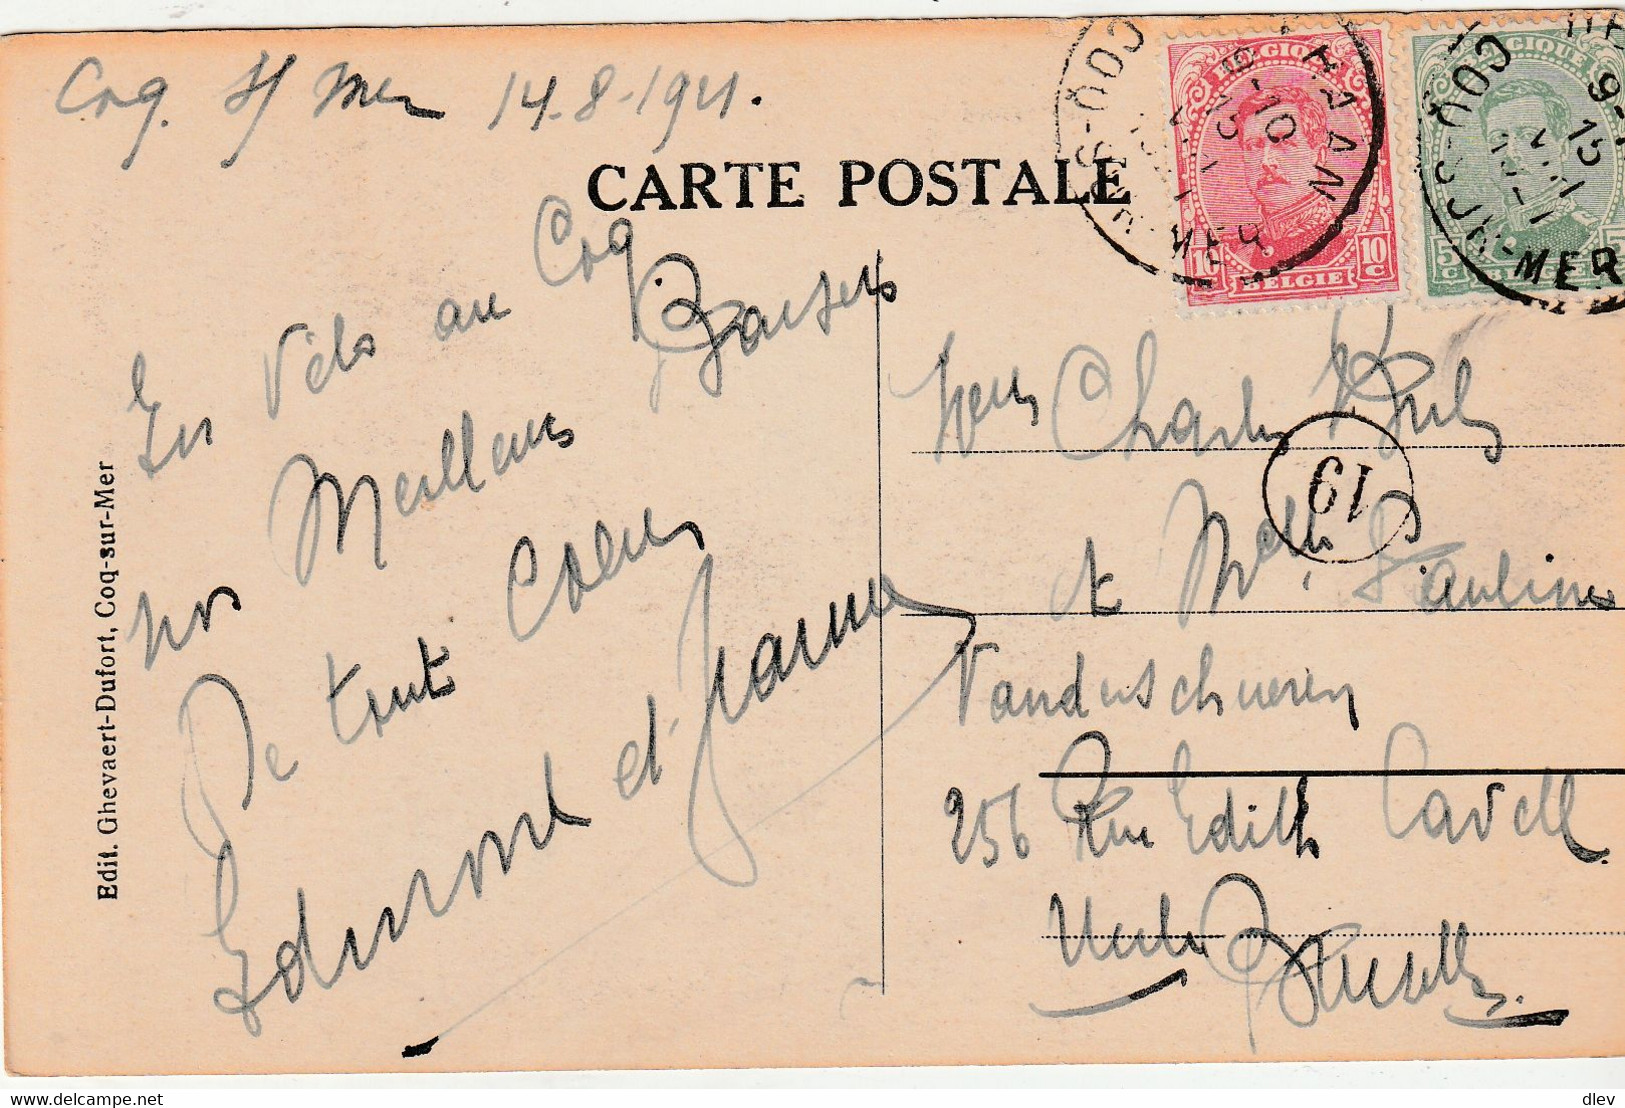 Coq s/ Mer 14-8-1921.
CARTE POSTALE
BELGIQUE
10 10 c
BELGIE
BELGIQUE
5 c
BELGIE
HAAN
COQ-SUR-MER
10
15
VIII
COQ-SUR-MER
15
VIII
En Vélo au Coq
nos Meilleurs Baisers
De tout Coeur
Edmond et Jeanne
Edit. Ghevaert-Dufort, Coq-sur-Mer
Charles
19
et Melle Pauline
Vanderschueren
256 Rue Edith Cavell
Uccle Bruxelles.
delcampe.net
dlev